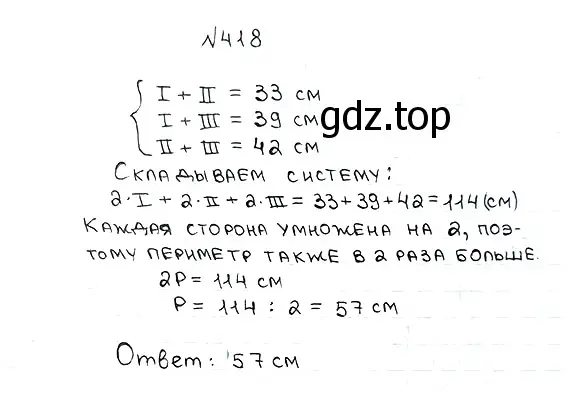 №418
I + II = 33 см
I + III = 39 см
gdz.top
II + III = 42 см
Складываем систему:
2·I + 2·II + 2·III = 33+39+42=114(см)
Каждая сторона умножена на 2, поэ-
тому периметр также в 2 раза больше.
2P = 114 см
P = 114 : 2 = 57 см
Ответ: 57 см